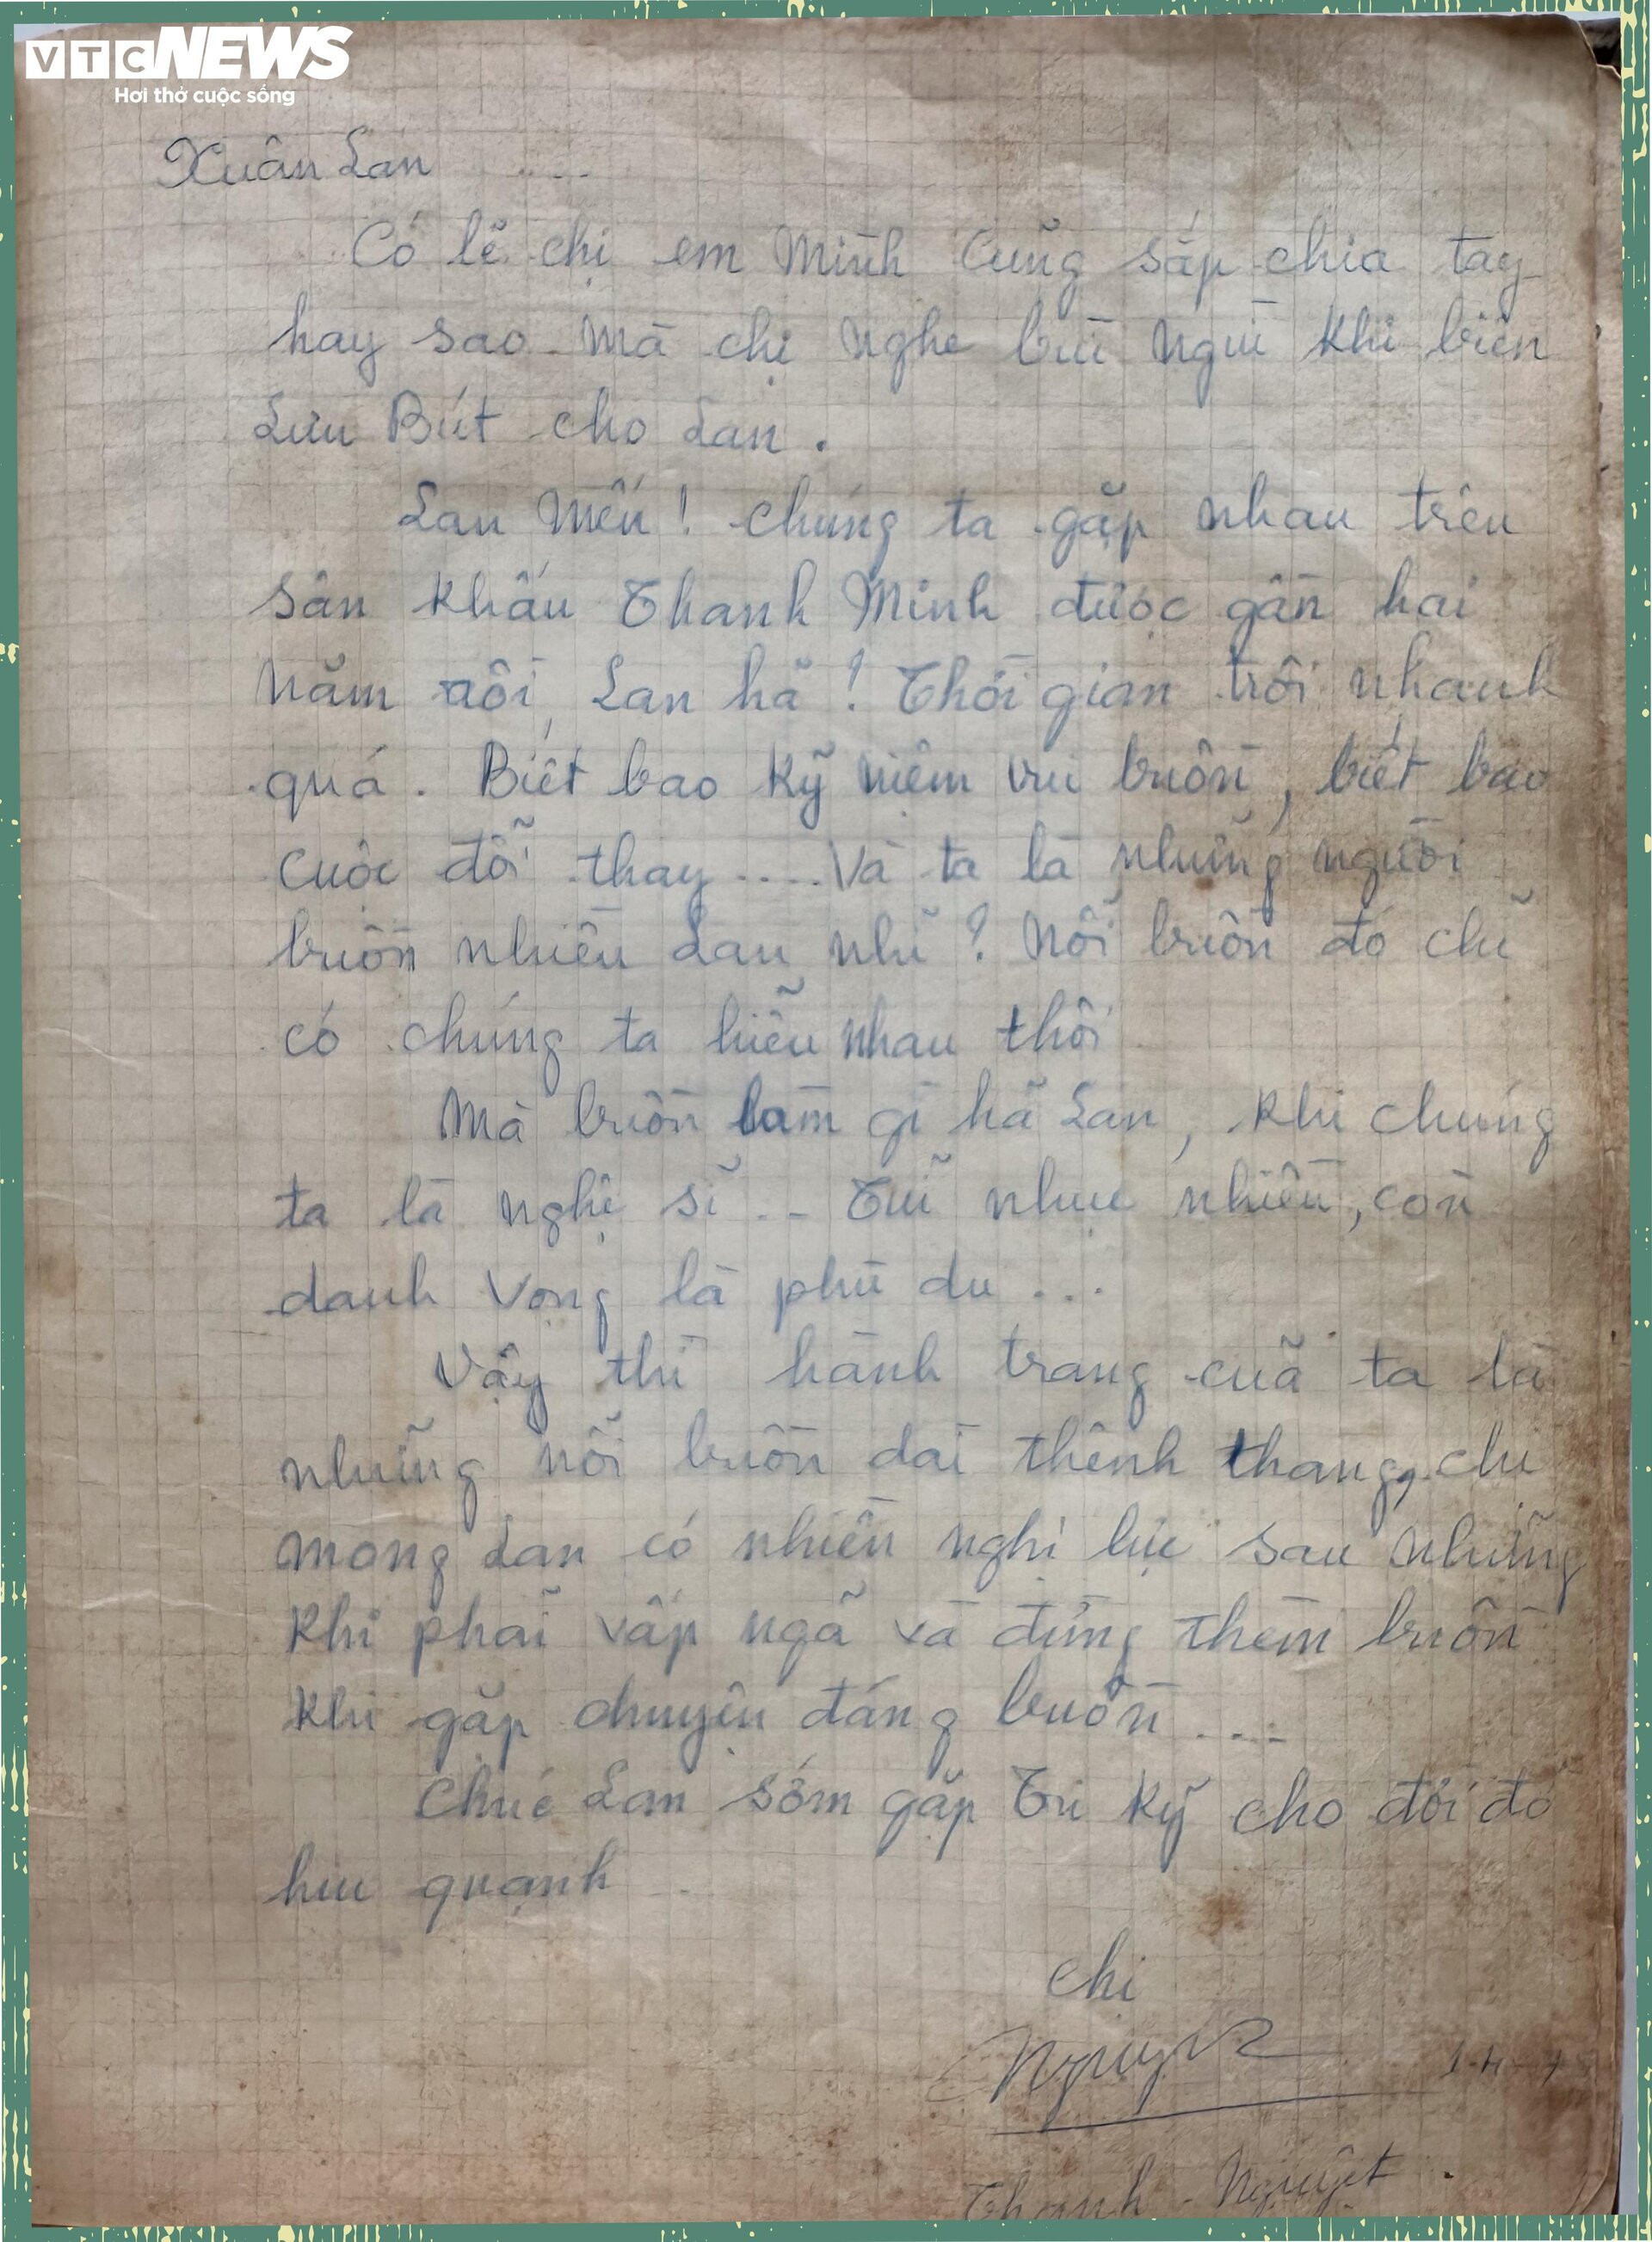 VTC NEWS
Hơi thở cuộc sống
Xuân Lan ....
Có lẽ chị em Mình Cũng sắp chia tay
hay sao mà chị nghe bùi ngùi khi biên
Lưu Bút cho Lan.
Lan Mến! chúng ta gặp nhau trên
sân khấu Thanh Minh được gần hai
năm rồi, Lan hã! Thời gian trôi nhanh
quá. Biết bao kỹ niệm vui buồn, biết bao
cuộc đỗi thay .... Và ta là những người
buồn nhiều Lan nhĩ? Nỗi buồn đó chĩ
có chúng ta hiễu nhau thôi
Mà buồn làm gì hã Lan, khi chúng
ta là nghệ sĩ .. Tũi nhục nhiều, còn
danh vọng là phù du ...
Vậy thì hành trang cuã ta là
những nỗi buồn dài thênh thang, chị
mong Lan có nhiều nghị lực sau những
khi phãi vấp ngã và đừng thèm buồn
khi gặp chuyện đáng buồn ....
Chúc Lan sớm gặp Tri kỹ cho đời đỡ
hiu quạnh
Chị
Nguyệt
Thanh - Nguyệt.